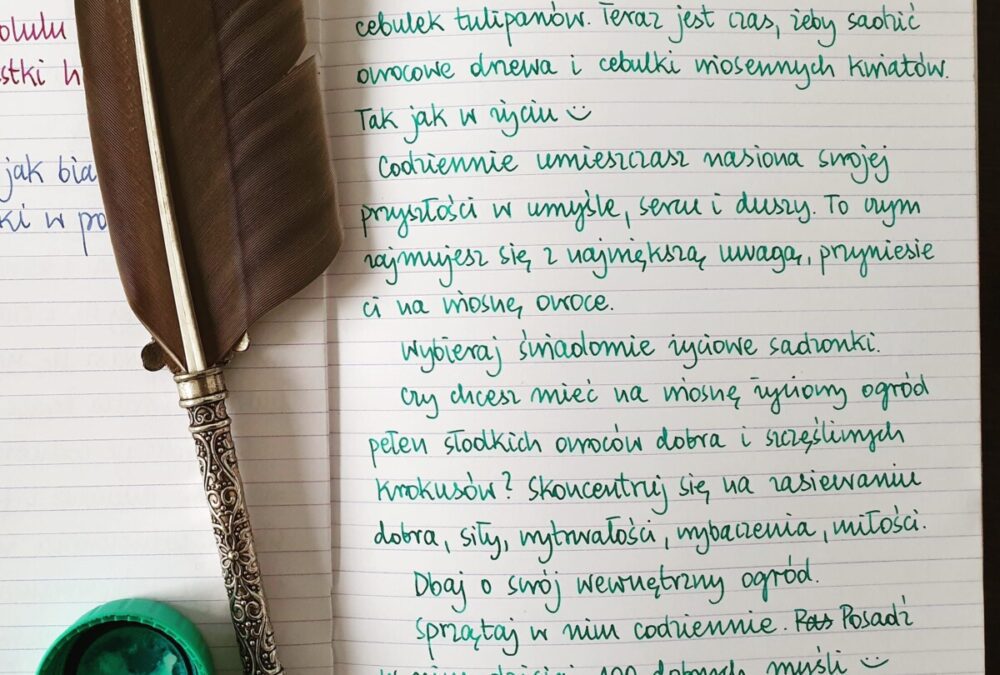 olulu
stki h
jak bia
ki w po
cebulek tulipanów. Teraz jest czas, żeby sadzić
owocowe drzewa i cebulki wiosennych kwiatów.
Tak jak w życiu
Codziennie umieszczasz nasiona swojej
przyszłości w umyśle, sercu i duszy. To czym
zajmujesz się z największą uwagą, przyniesie
ci na wiosnę owoce.
Wybieraj świadomie życiowe sadzonki.
Czy chcesz mieć na wiosnę życiowy ogród
pełen słodkich owoców dobra i szczęśliwych
krokusów? Skoncentruj się na zasiewaniu
dobra, siły, wytrwałości, wybaczenia, miłości.
Dbaj o swój wewnętrzny ogród.
Sprzątaj w nim codziennie. Pos Posadź
w nim dzisiaj 100 dobrych myśli